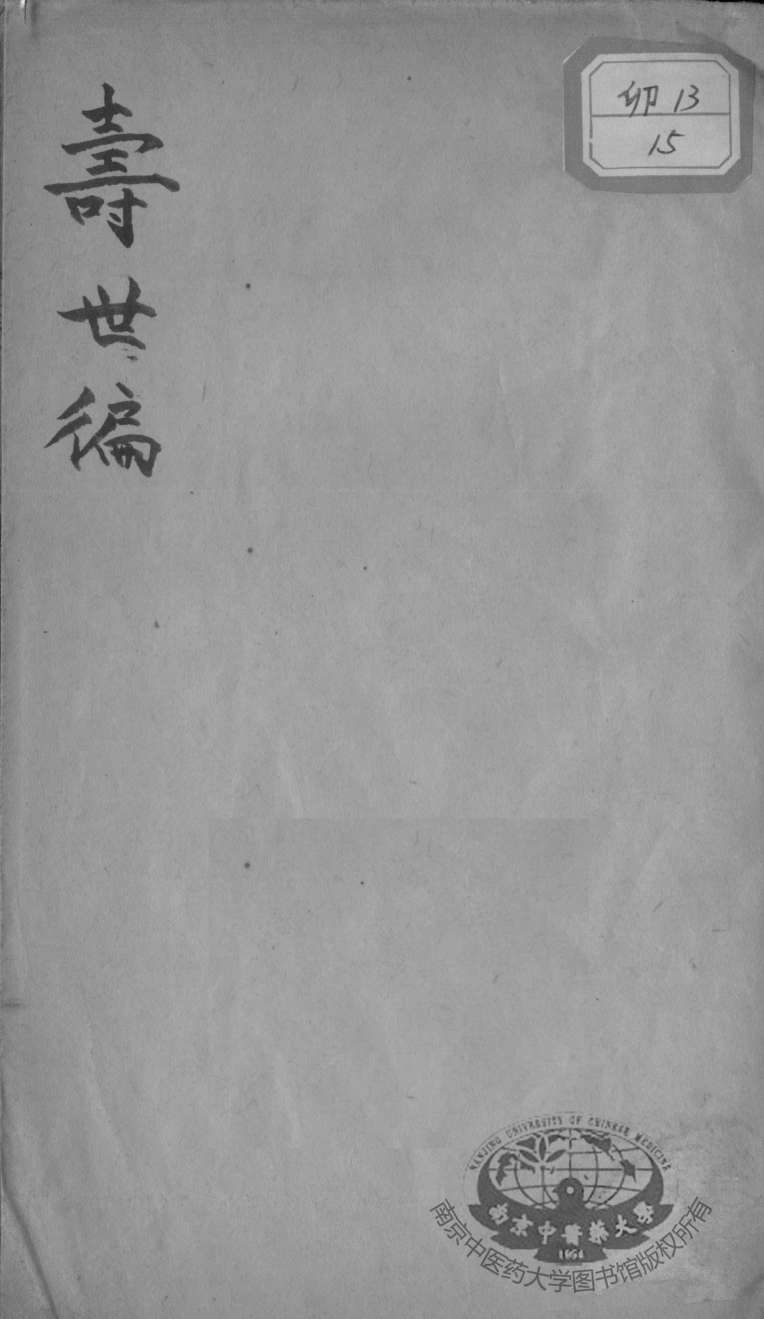 壽世徧
卯13
15
NANJING UNIVERSITY OF CHINESE MEDICINE
南京中醫藥大學
1954
南京中医药大学图书馆版权所有